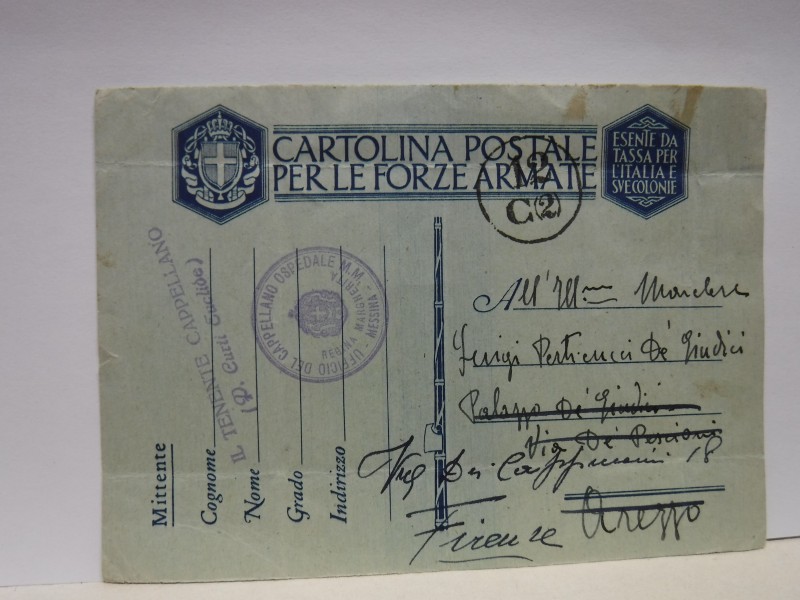 CARTOLINA POSTALE
PER LE FORZE ARMATE
ESENTE DA
TASSA PER
L'ITALIA E
SVE COLONIE
12
C(2)
IL TENENTE CAPPELLANO
(P. Curti Euclide)
UFFICIO DEL CAPPELLANO OSPEDALE M.M.
REGINA MARGHERITA
MESSINA
Mittente
Cognome
Nome
Grado
Indirizzo
All' Ill mo Marchese
Luigi De' Giudici
Palazzo De' Giudici
Via De'
Via Dei 18
Firenze
Arezzo